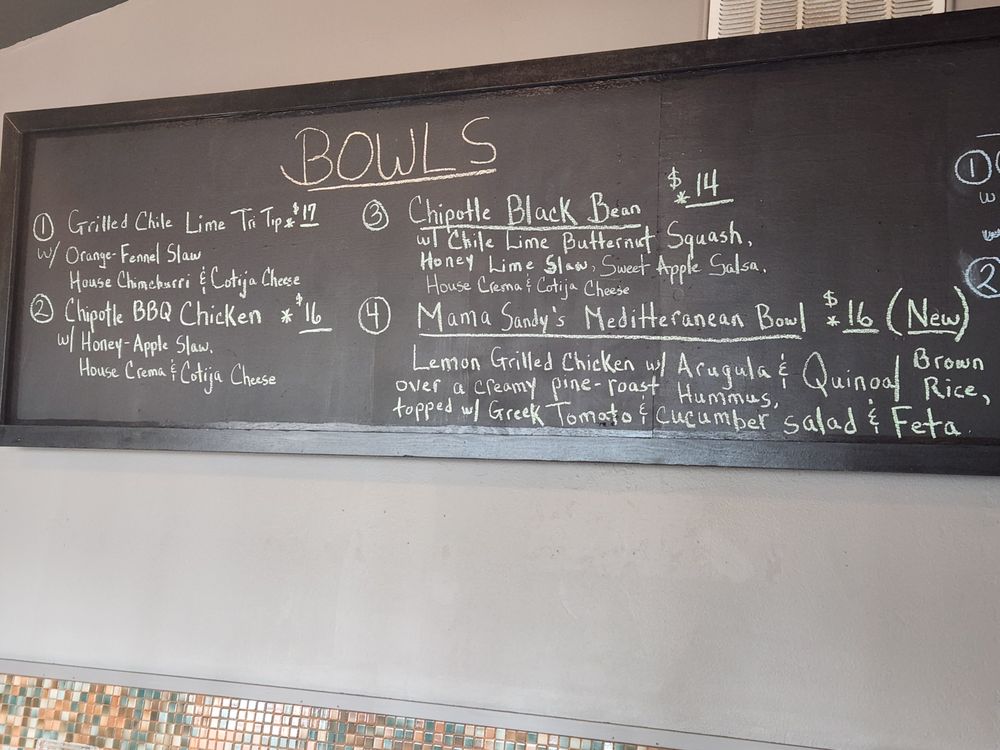 BOWLS
① Grilled Chile Lime Tri Tip *$17
w/ Orange-Fennel Slaw
House Chimchurri & Cotija Cheese
② Chipotle BBQ Chicken *$16
w/ Honey-Apple Slaw.
House Crema & Cotija Cheese
③ Chipotle Black Bean *$14
w/ Chile Lime Butternut Squash,
Honey Lime Slaw, Sweet Apple Salsa.
House Crema & Cotija Cheese
④ Mama Sandy's Meditteranean Bowl *$16 (New)
Lemon Grilled Chicken w/ Arugula & Quinoa/ Brown Rice,
over a creamy pine-roast Hummus,
topped w/ Greek Tomato & Cucumber salad & Feta.
①
w
②